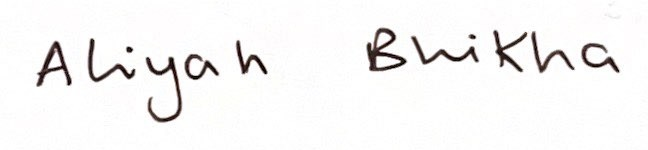 Aliyah Bhikha